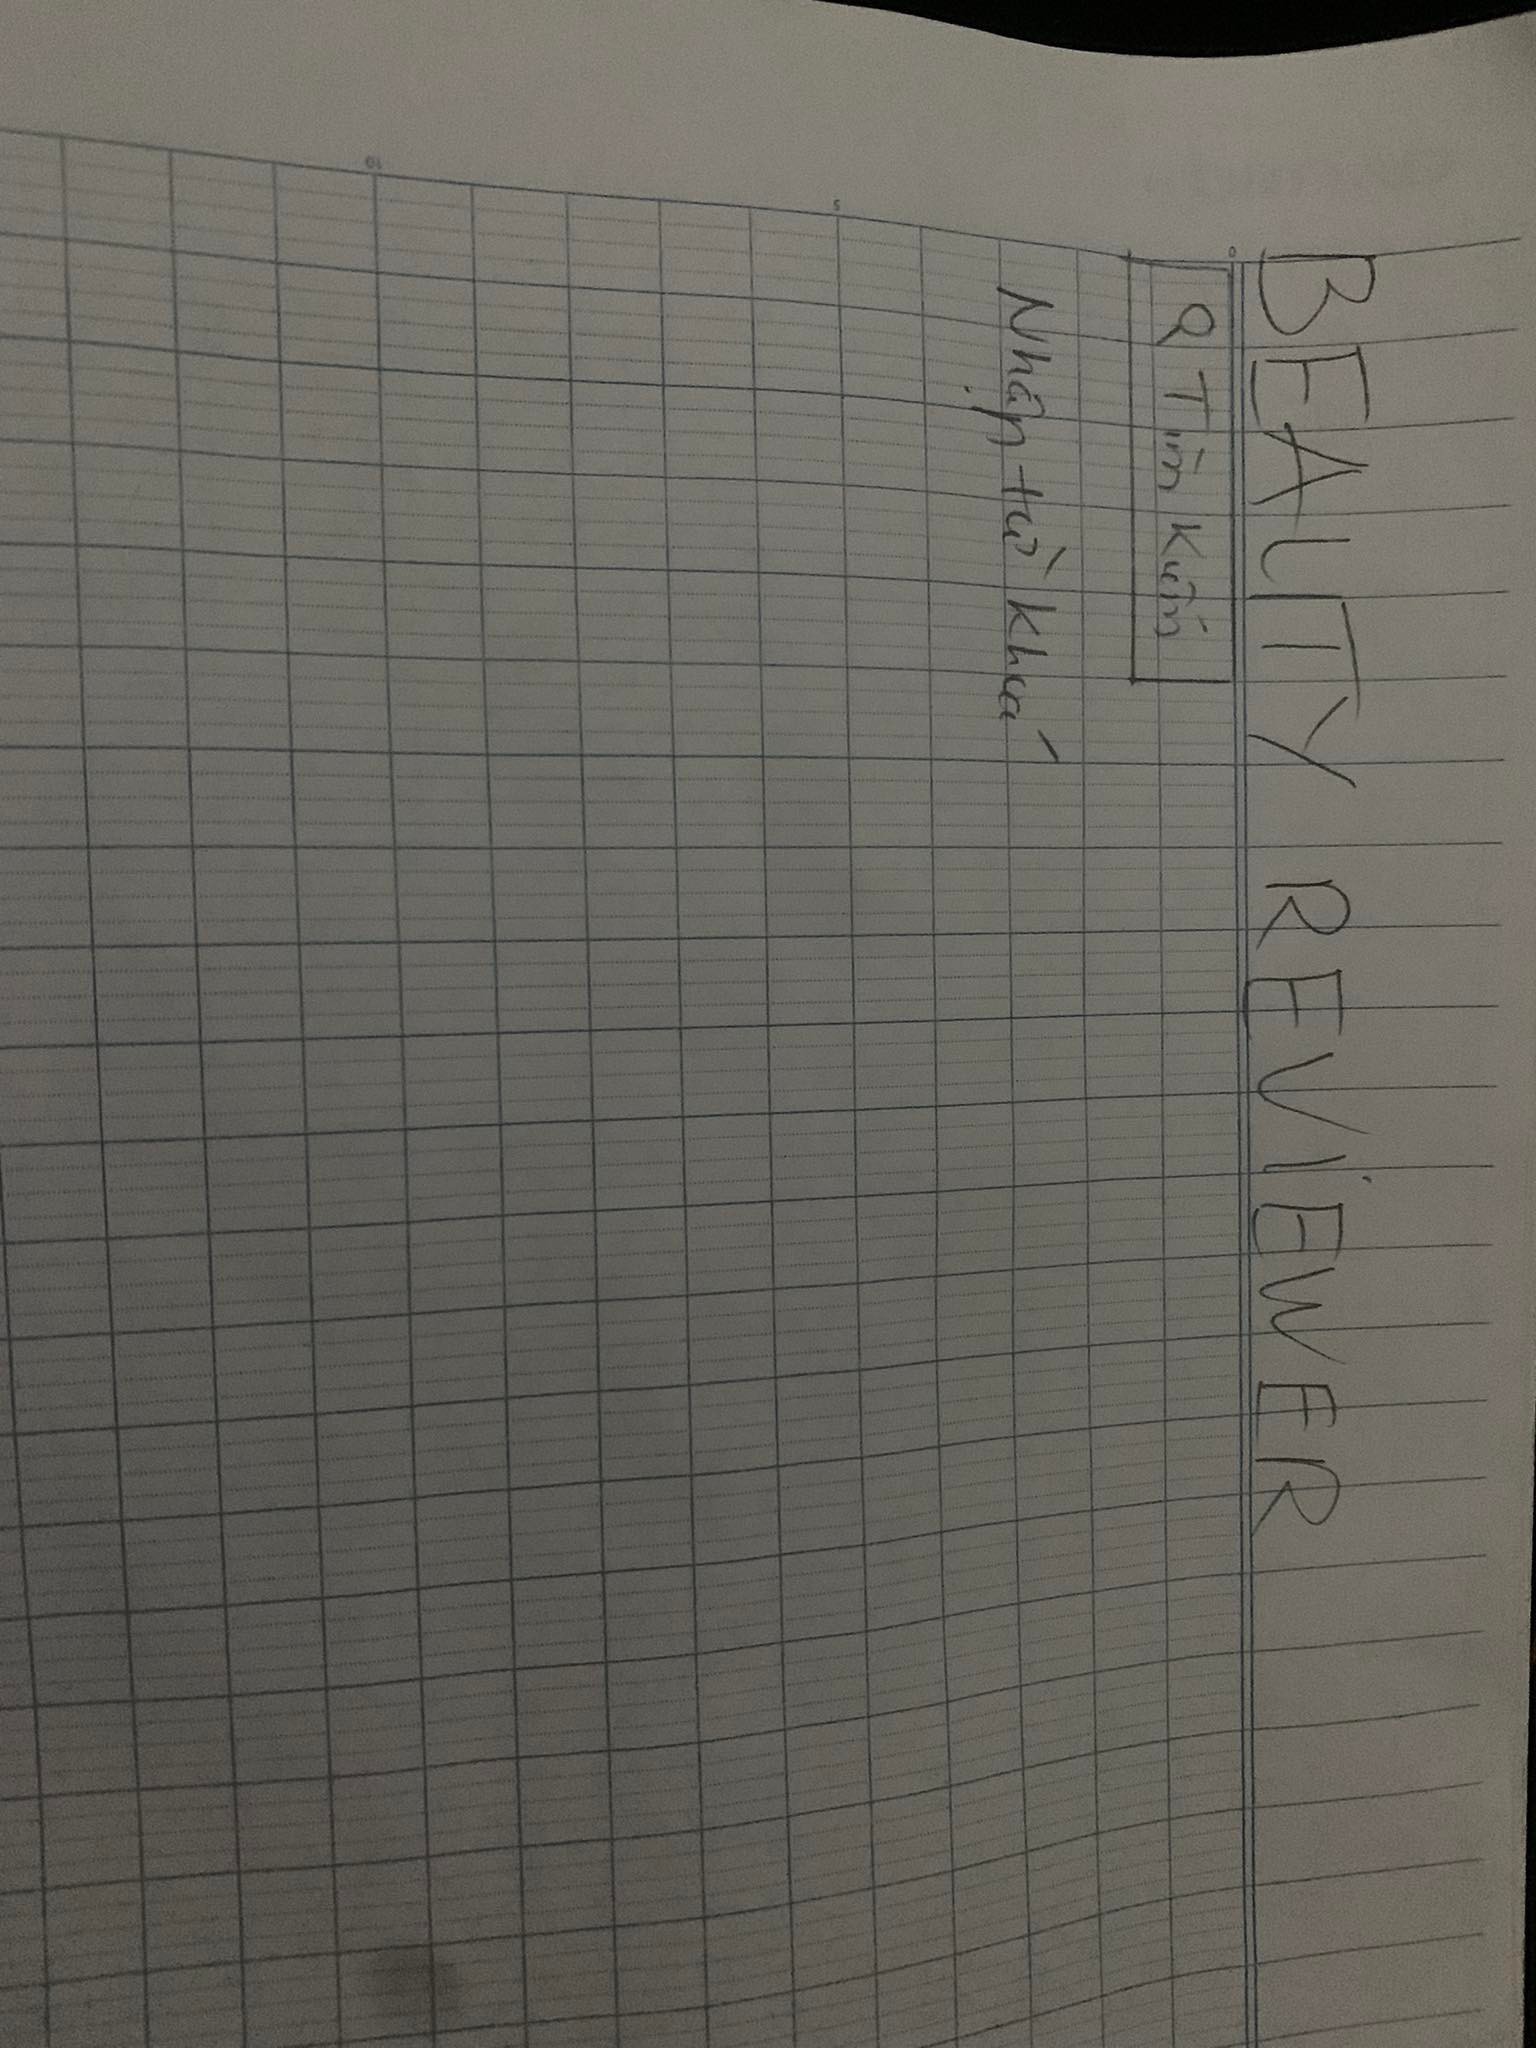 BEAUTY REVIEWER
Tìm Kiếm
Nhập từ khoá
0
5
10